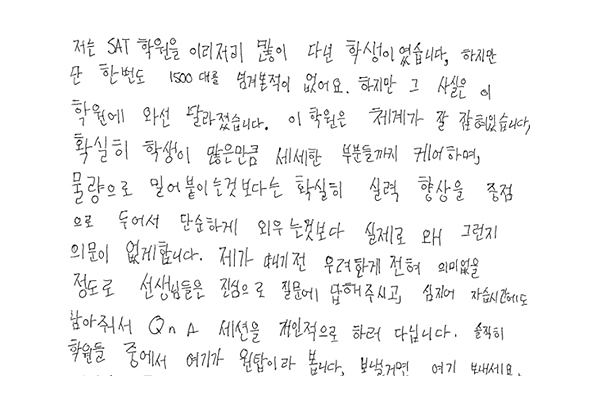 저는 SAT 학원을 이리저리 많이 다닌 학생이었습니다, 하지만
단 한번도 1500대를 넘겨본적이 없어요. 하지만 그 사실은 이
학원에 와선 달라졌습니다. 이 학원은 체계가 잘 잡혀있습니다,
확실히 학생이 많은만큼 세세한 부분들까지 케어하며,
물량으로 밀어붙이는것보다는 확실히 실력 향상을 중점
으로 두어서 단순하게 외우는것보다 실제로 왜 그런지
의문이 없게합니다. 제가 오기전 우려한게 전혀 의미없을
정도로 선생님들은 진심으로 질문에 답해주시고, 심지어 자습시간에도
남아줘서 QnA 세션을 개인적으로 하러 다닙니다. 솔직히
학원들 중에서 여기가 원탑이라 봅니다, 보낼거면 여기 보내세요.